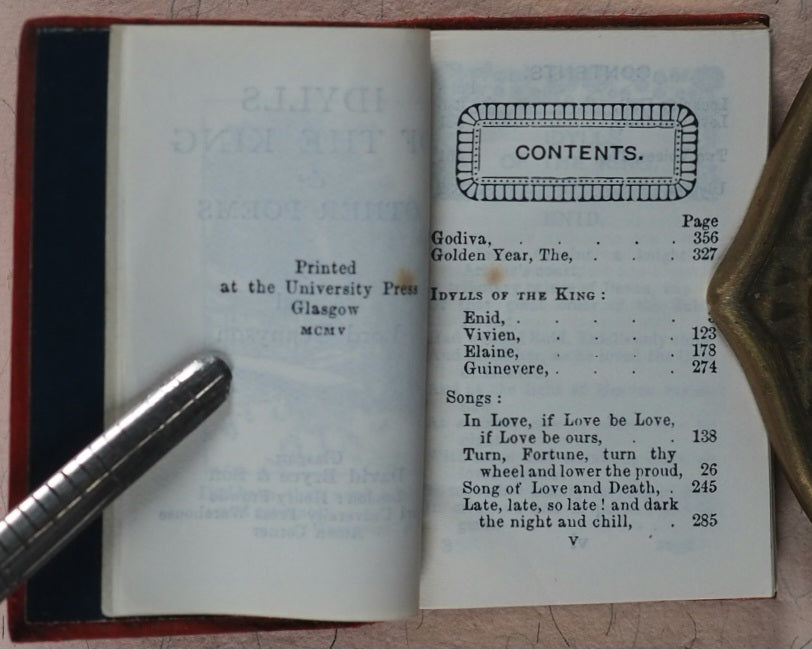 Printed
at the University Press
Glasgow
MCMV
CONTENTS.
Page
Godiva, . . . . . . 356
Golden Year, The, . . . . 327
IDYLLS OF THE KING :
Enid, . . . . . .
Vivien, . . . . . 123
Elaine, . . . . . 178
Guinevere, . . . . 274
Songs :
In Love, if Love be Love,
if Love be ours, . . 138
Turn, Fortune, turn thy
wheel and lower the proud, 26
Song of Love and Death, . 245
Late, late, so late ! and dark
the night and chill, . 285
V
IDYLLS
OF THE KING
OTHER POEMS
Glasgow:
David Bryce & Son
CONTENTS.
ENID.